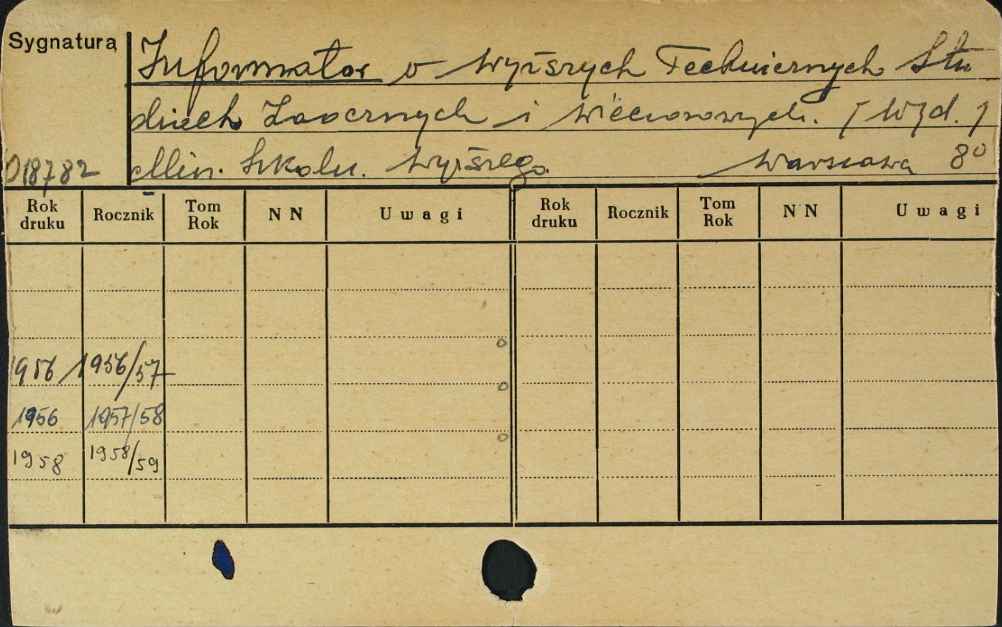 Sygnatura
Informator o Wyższych Technicznych Stu
diach Zaocznych i Wieczorowych. [Wyd.]
Min. Szkoln. Wyższego Warszawa 8°
018782
Rok druku Rocznik Tom Rok NN Uwagi Rok druku Rocznik Tom Rok NN Uwagi
1956 1956/57
1956 1957/58
1958 1958/59